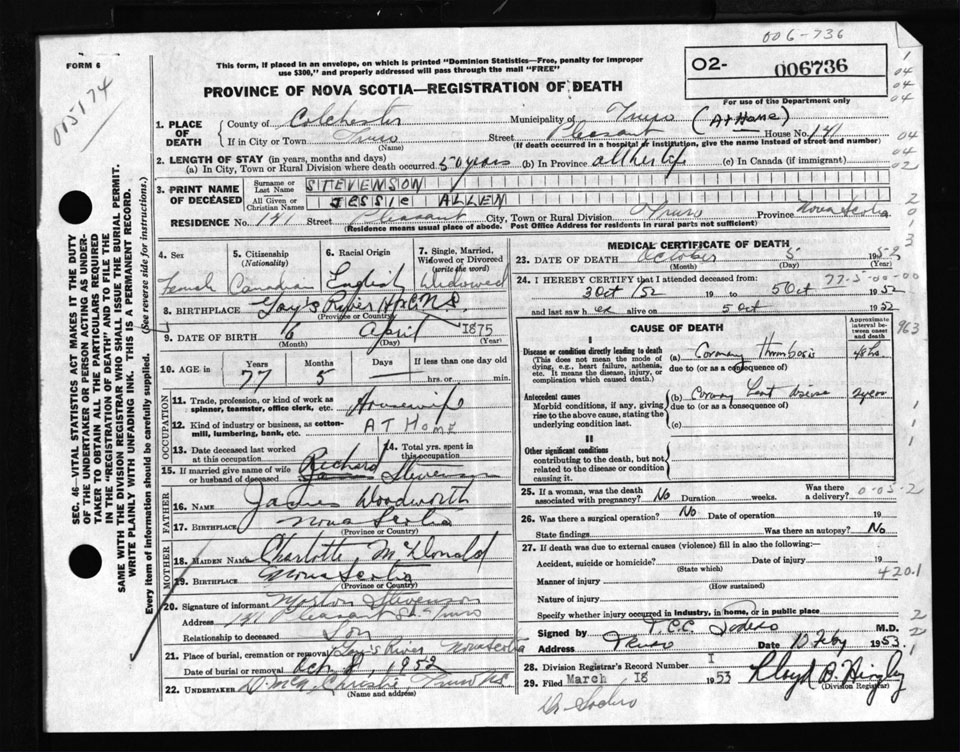 006-736
FORM 6
005174
This form, if placed in an envelope, on which is printed "Dominion Statistics—Free, penalty for improper
use $300," and properly addressed will pass through the mail "FREE"
O2- 006736
PROVINCE OF NOVA SCOTIA—REGISTRATION OF DEATH
For use of the Department only
1. PLACE OF DEATH
County of Colchester Municipality of Truro (At Home)
If in City or Town Truro Street Pleasant House No. 141
(Name) (If death occurred in a hospital or institution, give the name instead of street and number)
2. LENGTH OF STAY (in years, months and days)
(a) In City, Town or Rural Division where death occurred 50 years (b) In Province all her life (c) In Canada (if immigrant)
3. PRINT NAME OF DECEASED
Surname or Last Name STEVENSON
All Given or Christian Names JESSIE ALLEN
RESIDENCE No. 141 Street Pleasant City, Town or Rural Division Truro Province Nova Scotia
(Residence means usual place of abode. Post Office Address for residents in rural parts not sufficient)
4. Sex Female
5. Citizenship (Nationality) Canadian
6. Racial Origin English
7. Single, Married, Widowed or Divorced (write the word) Widowed
8. BIRTHPLACE Gay's River N.S.
(Province or Country)
9. DATE OF BIRTH 6 April 1875
(Month) (Day) (Year)
10. AGE in Years Months Days If less than one day old
77 5 hrs. or min.
OCCUPATION
11. Trade, profession or kind of work as
spinner, teamster, office clerk, etc. Housewife
12. Kind of industry or business, as cotton-
mill, lumbering, bank, etc. AT HOME
13. Date deceased last worked at this occupation
14. Total yrs. spent in this occupation
15. If married give name of wife or husband of deceased Richard Stevenson
FATHER
16. NAME James Woodworth
17. BIRTHPLACE Nova Scotia
(Province or Country)
MOTHER
18. MAIDEN NAME Charlotte McDonald
19. BIRTHPLACE Nova Scotia
(Province or Country)
20. Signature of informant Morton Stevenson
Address 141 Pleasant St Truro
Relationship to deceased Son
21. Place of burial, cremation or removal Gay's River Nova Scotia
Date of burial or removal Oct. 8, 1952
22. UNDERTAKER Christie, Truro N.S.
(Name and address)
MEDICAL CERTIFICATE OF DEATH
23. DATE OF DEATH October 5 1952
(Month) (Day) (Year)
24. I HEREBY CERTIFY that I attended deceased from: 77-5-00-00
3 Oct /52 19 to 5 Oct 1952
and last saw her alive on 5 Oct 1952
CAUSE OF DEATH
Approximate interval between onset and death
963
I
Disease or condition directly leading to death
(This does not mean the mode of
dying, e.g., heart failure, asthenia,
etc. It means the disease, injury, or
complication which caused death.)
(a) Coronary Thrombosis 48 hrs
due to (or as a consequence of)
Antecedent causes
Morbid conditions, if any, giving
rise to the above cause, stating the
underlying condition last.
(b) Coronary heart disease
due to (or as a consequence of)
(c)
II
Other significant conditions
contributing to the death, but not
related to the disease or condition
causing it.
25. If a woman, was the death associated with pregnancy? No Duration weeks. Was there a delivery? 0-05-2
26. Was there a surgical operation? No Date of operation 19
State findings Was there an autopsy? No
27. If death was due to external causes (violence) fill in also the following:—
Accident, suicide or homicide? Date of injury 19
(State which)
420.1
Manner of injury
(How sustained)
Nature of injury
Specify whether injury occurred in industry, in home, or in public place
Signed by T.C.C. Sodero M.D.
Address Truro Date 10 Feby 1953
28. Division Registrar's Record Number I
29. Filed March 18 1953 Lloyd B. Hingley
(Division Registrar)
Dr Sodero
SEC. 46—VITAL STATISTICS ACT MAKES IT THE DUTY
OF THE UNDERTAKER OR PERSON ACTING AS UNDER-
TAKER TO OBTAIN ALL THE PARTICULARS REQUIRED
IN THE "REGISTRATION OF DEATH" AND TO FILE THE
SAME WITH THE DIVISION REGISTRAR WHO SHALL ISSUE THE BURIAL PERMIT.
WRITE PLAINLY WITH UNFADING INK. THIS IS A PERMANENT RECORD.
Every item of information should be carefully supplied. (See reverse side for instructions.)